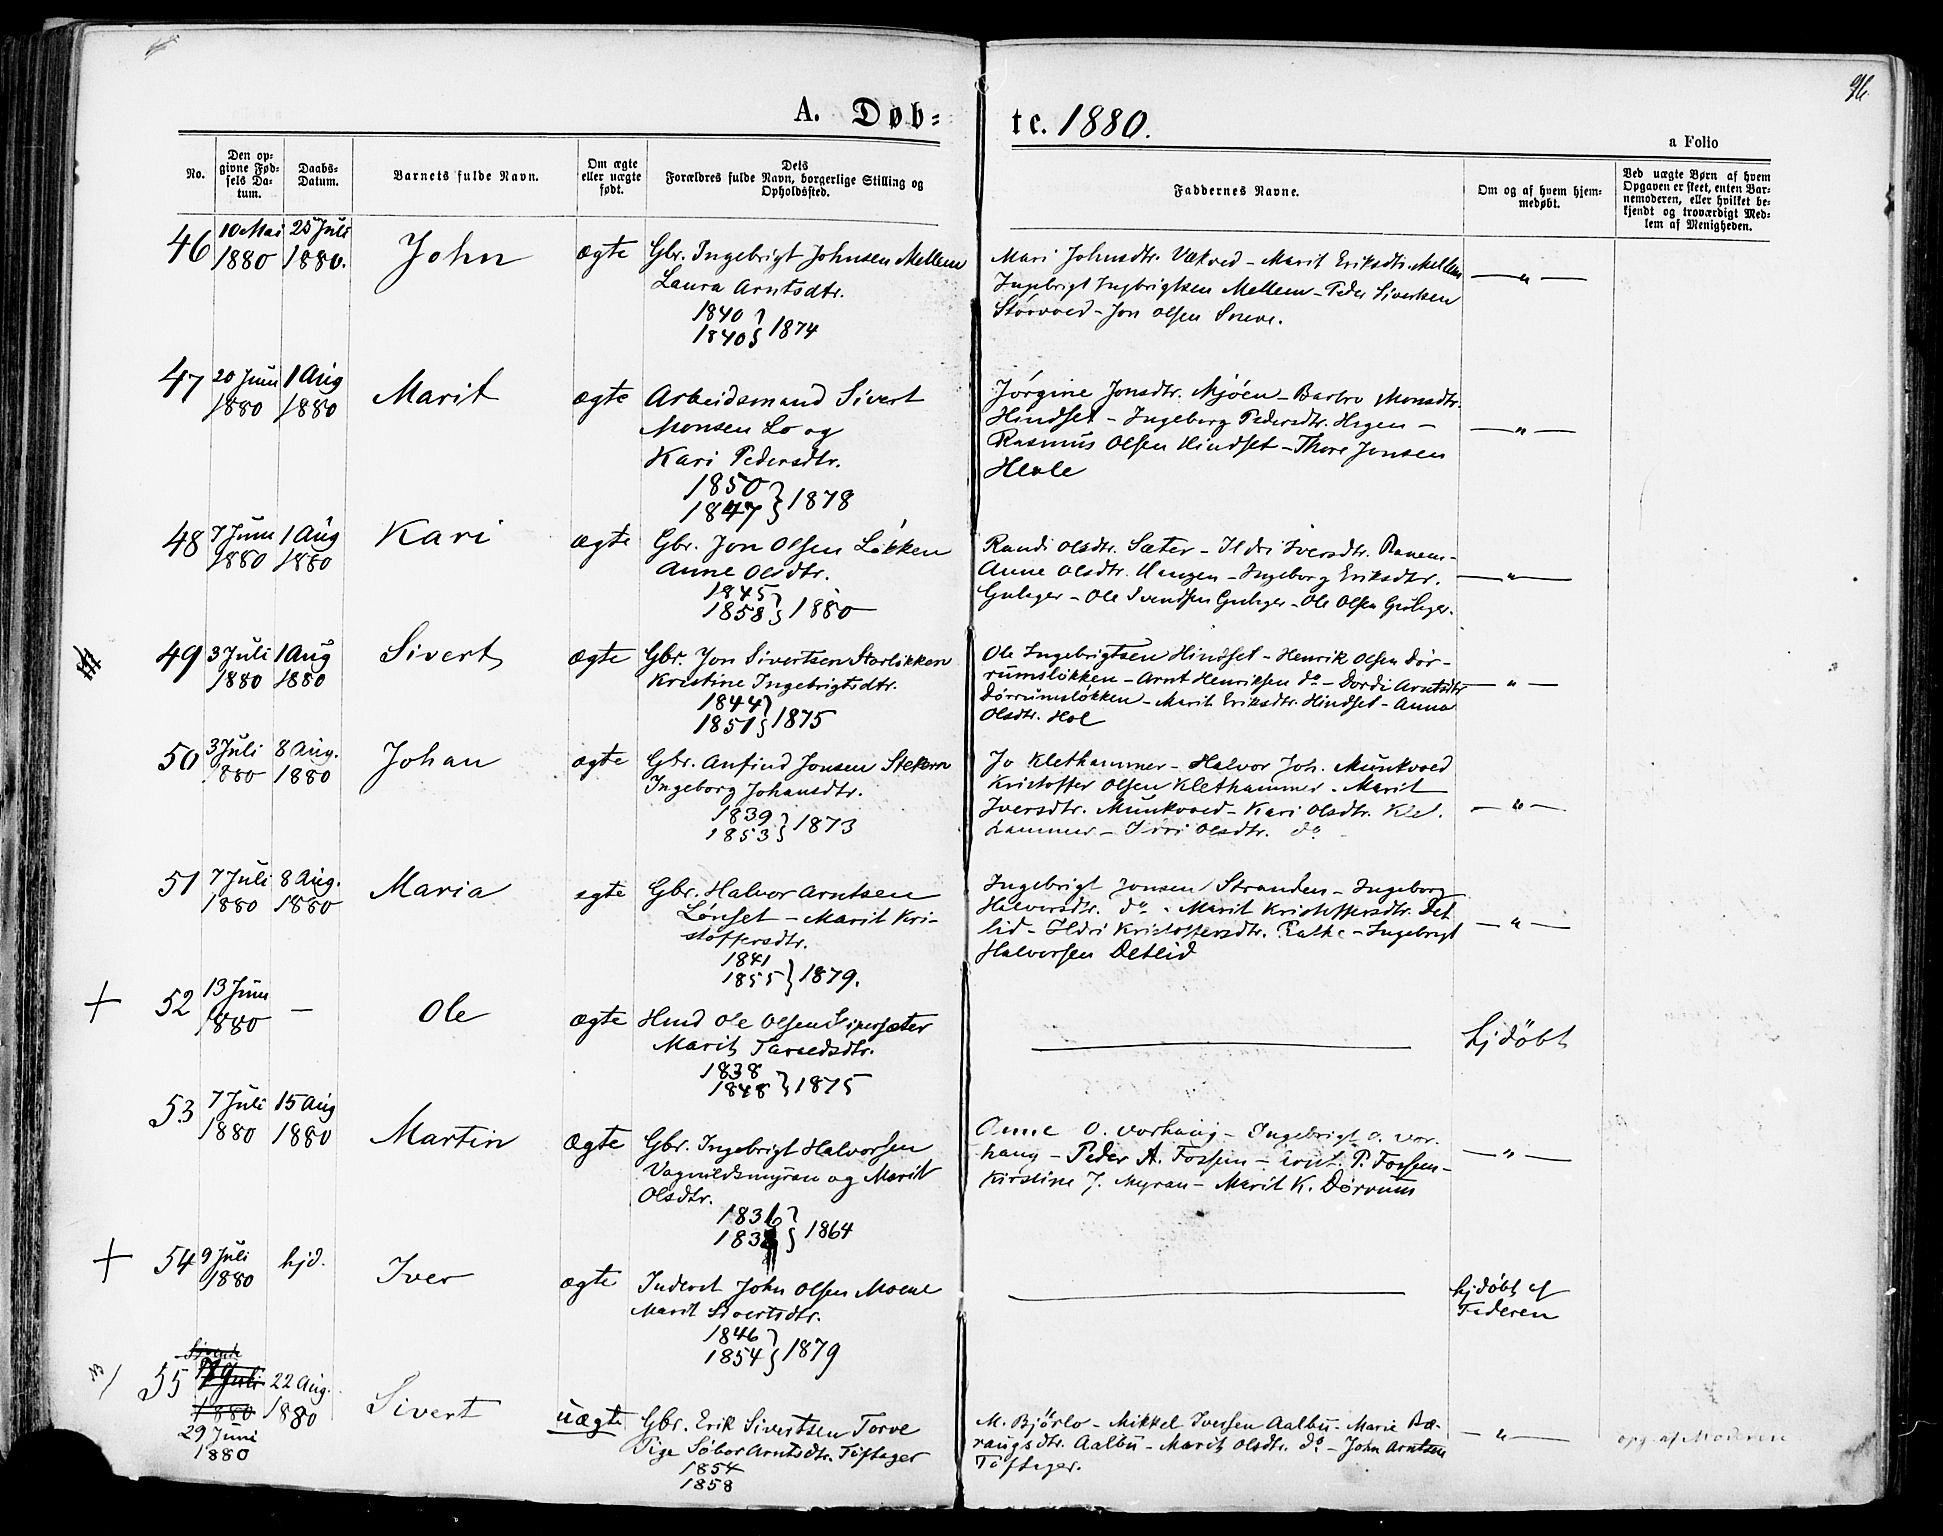 96.
A. Døb-
te. 1880.
a Folio
No.
Den op-
givne Fød-
sels Da-
tum.
Daabs-
Datum.
Barnets fulde Navn.
Om ægte
eller uægte
født.
Dets
Forældres fulde Navn, borgerlige Stilling og
Opholdssted.
Faddernes Navne.
Om og af hvem hjem-
medøbt.
Ved uægte Børn af hvem
Opgaven er skeet, enten Bar-
nemoderen, eller hvilket be-
kjendt og troværdigt Med-
lem af Menigheden.
46 10 Mai 1880 25 Juli 1880. John ægte Gbr. Ingebrigt Johnsen Mellem
Laura Arntsdtr.
1840 } 1874
1840
Mari Johnsdtr. Vækved - Marit Eriksdtr. Mellem
Ingebrigt Ingbrigtsen Mellem - Peder Sivertsen
Storvoed - Jon Olsen Sneve.
— " —
47 20 Juni 1880 1 Aug 1880 Marit ægte Arbeidsmand Sivert
Monsen Lo og
Kari Pedersdtr.
1850 } 1878
1847
Jørgine Jonsdtr. Mjøen - Barbro Monsdtr.
Hindset - Ingeborg Pedersdtr. Hegen -
Rasmus Olsen Hindset - Thore Jonsen
Hevle
— " —
48 7 Juni 1880 1 Aug 1880 Kari ægte Gbr. Jon Olsen Løkken
Anne Olsdtr.
1845 } 1880
1858
Randi Olsdtr. Sæter - Ildri Iversdtr. Ranem -
Anne Olsdtr. Haugen - Ingeborg Eriksdtr.
Gulager - Ole Svendsen Gulager - Ole Olsen Gulager.
— " —
49 3 Juli 1880 1 Aug 1880 Sivert ægte Gbr. Jon Sivertsen Storløkken
Kristine Ingebrigtsdtr.
1844 } 1875
1851
Ole Ingebrigtsen Hindset - Henrik Olsen Dør-
rumsløkken - Arnt Henriksen do - Dordi Arntsdtr
Dørrumsløkken - Marit Eriksdtr. Hindset - Anna
Olsdtr. Hol
— " —
50 3 Juli 1880 8 Aug. 1880 Johan ægte Gbr. Anfind Jonsen Stekern
Ingeborg Johansdtr.
1839 } 1873
1853
Jo Klethammer - Halvor Joh. Munkvoed
Kristoffer Olsen Klethammer - Marit
Iversdtr. Munkvoed - Kari Olsdtr. Klet-
hammer - Ildri Olsdtr. do
— " —
51 7 Juli 1880 8 Aug. 1880 Maria egte Gbr. Halvor Arntsen
Lønset - Marit Kri-
stoffersdtr.
1841 } 1879.
1855
Ingebrigt Jonsen Stranden - Ingeborg
Halvorsdtr. do - Marit Kristoffersdtr. Det
lid - Ildri Kristoffersdtr. Rathe - Ingebrigt
Halvorsen Detlid
— " —
+ 52 13 Juni 1880 — Ole ægte Hmd Ole Olsen
Marit Taraldsdtr.
1838 } 1875
1848
hjdøbt
53 7 Juli 1880 15 Aug 1880 Martin Ægte Gbr. Ingebrigt Halvorsen
Vognildsmyran og Marit
Olsdtr.
1836 } 1864
Anne O. Vorhaug - Ingebrigt O. Vor-
haug - Peder A. Fossem - Arnt. P. Fossem -
Kirstine J. Myran - Marit K. Dørrum
— " —
+ 54 9 Juli 1880 hjd. Iver ægte Inderst John Olsen Moene
Marit Sivertsdtr.
1846 } 1879
1854
hjdøbt af
Faderen
55 7 Juli 1880 29 Juni 1880 22 Aug. 1880 Sivert uægte Gbr. Erik Sivertsen Torve
Pige Søbor Arntsdtr. Tøftager
1854
1858
M. Bjørlo - Mikkel Iversen Aalbu - Marie Bæ-
raugsdtr. Aalbu - Marit Olsdtr. do - John Arntsen
Tøftager.
— " —
opg. af Moderen